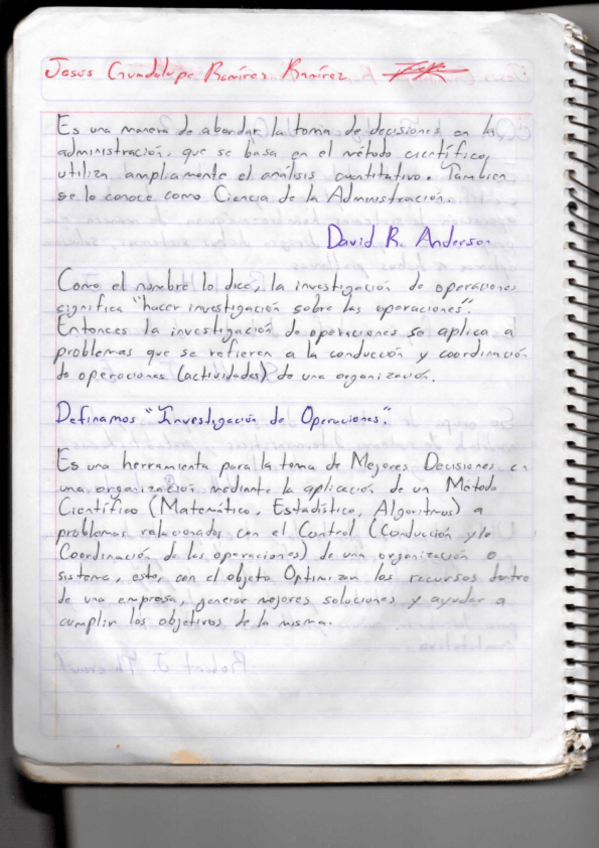 Jesus Guadalupe Ramírez Ramírez
Es una manera de abordar la toma de decisiones en la
administración, que se basa en el método científico,
utiliza ampliamente el análisis cuantitativo. También
se lo conoce como Ciencia de la Administración.
David R. Anderson
Como el nombre lo dice, la investigación de operaciones
significa "hacer investigación sobre las operaciones".
Entonces la investigación de operaciones se aplica a
problemas que se refieren a la conducción y coordinación
de operaciones (actividades) de una organización.
Definamos "Investigación de Operaciones."
Es una herramienta para la toma de Mejores Decisiones en
una organización mediante la aplicación de un Método
Científico (Matemático, Estadístico, Algoritmos) a
problemas relacionados con el Control (Conducción y/o
Coordinación de las operaciones) de una organización o
sistema, esto, con el objeto Optimizan los recursos dentro
de una empresa, generar mejores soluciones y ayudar a
cumplir los objetivos de la misma.